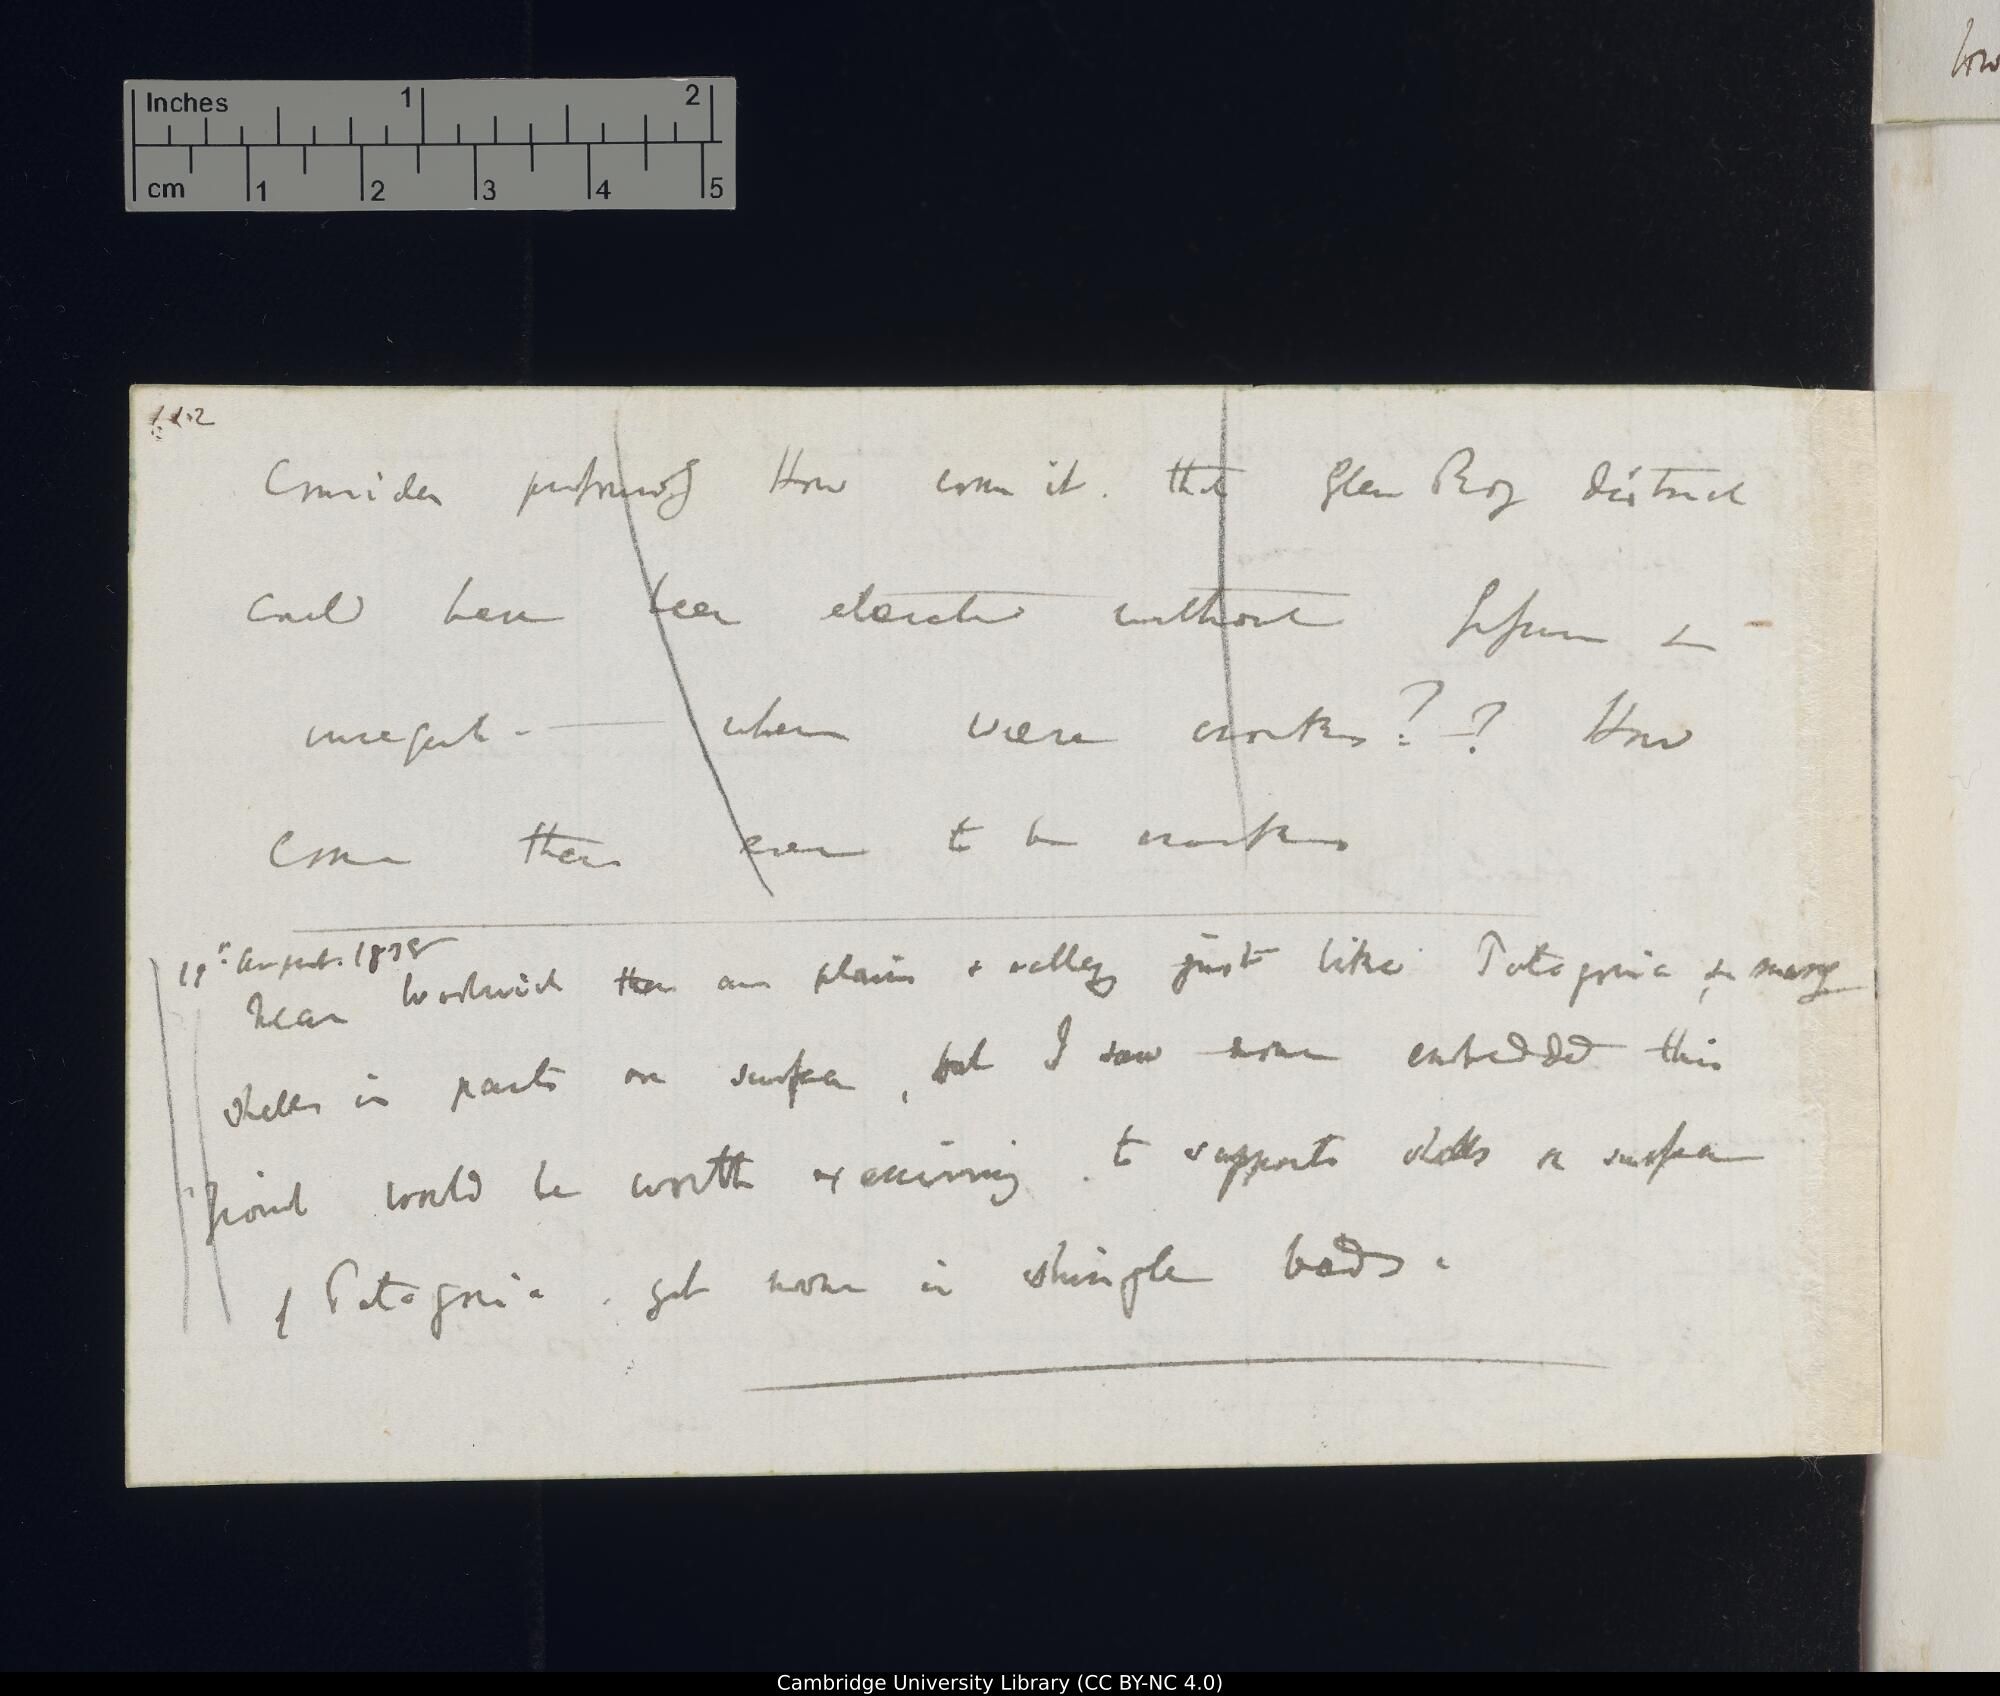 Inches 1 2
cm 1 2 3 4 5
112
Consider profoundly How comes it. that Glen Roy district
could have been elevated without fissures &
unequal.— where were cracks? – ? How
come there ever to be cracks
August. 1838
Near Woolwich there are plains & valleys just like Patagonia, & many
shells in parts on surface, but I saw none embedded this
point would be worth examining. to support shells on surface
of Patagonia. yet none in shingle beds.
Cambridge University Library (CC BY-NC 4.0)